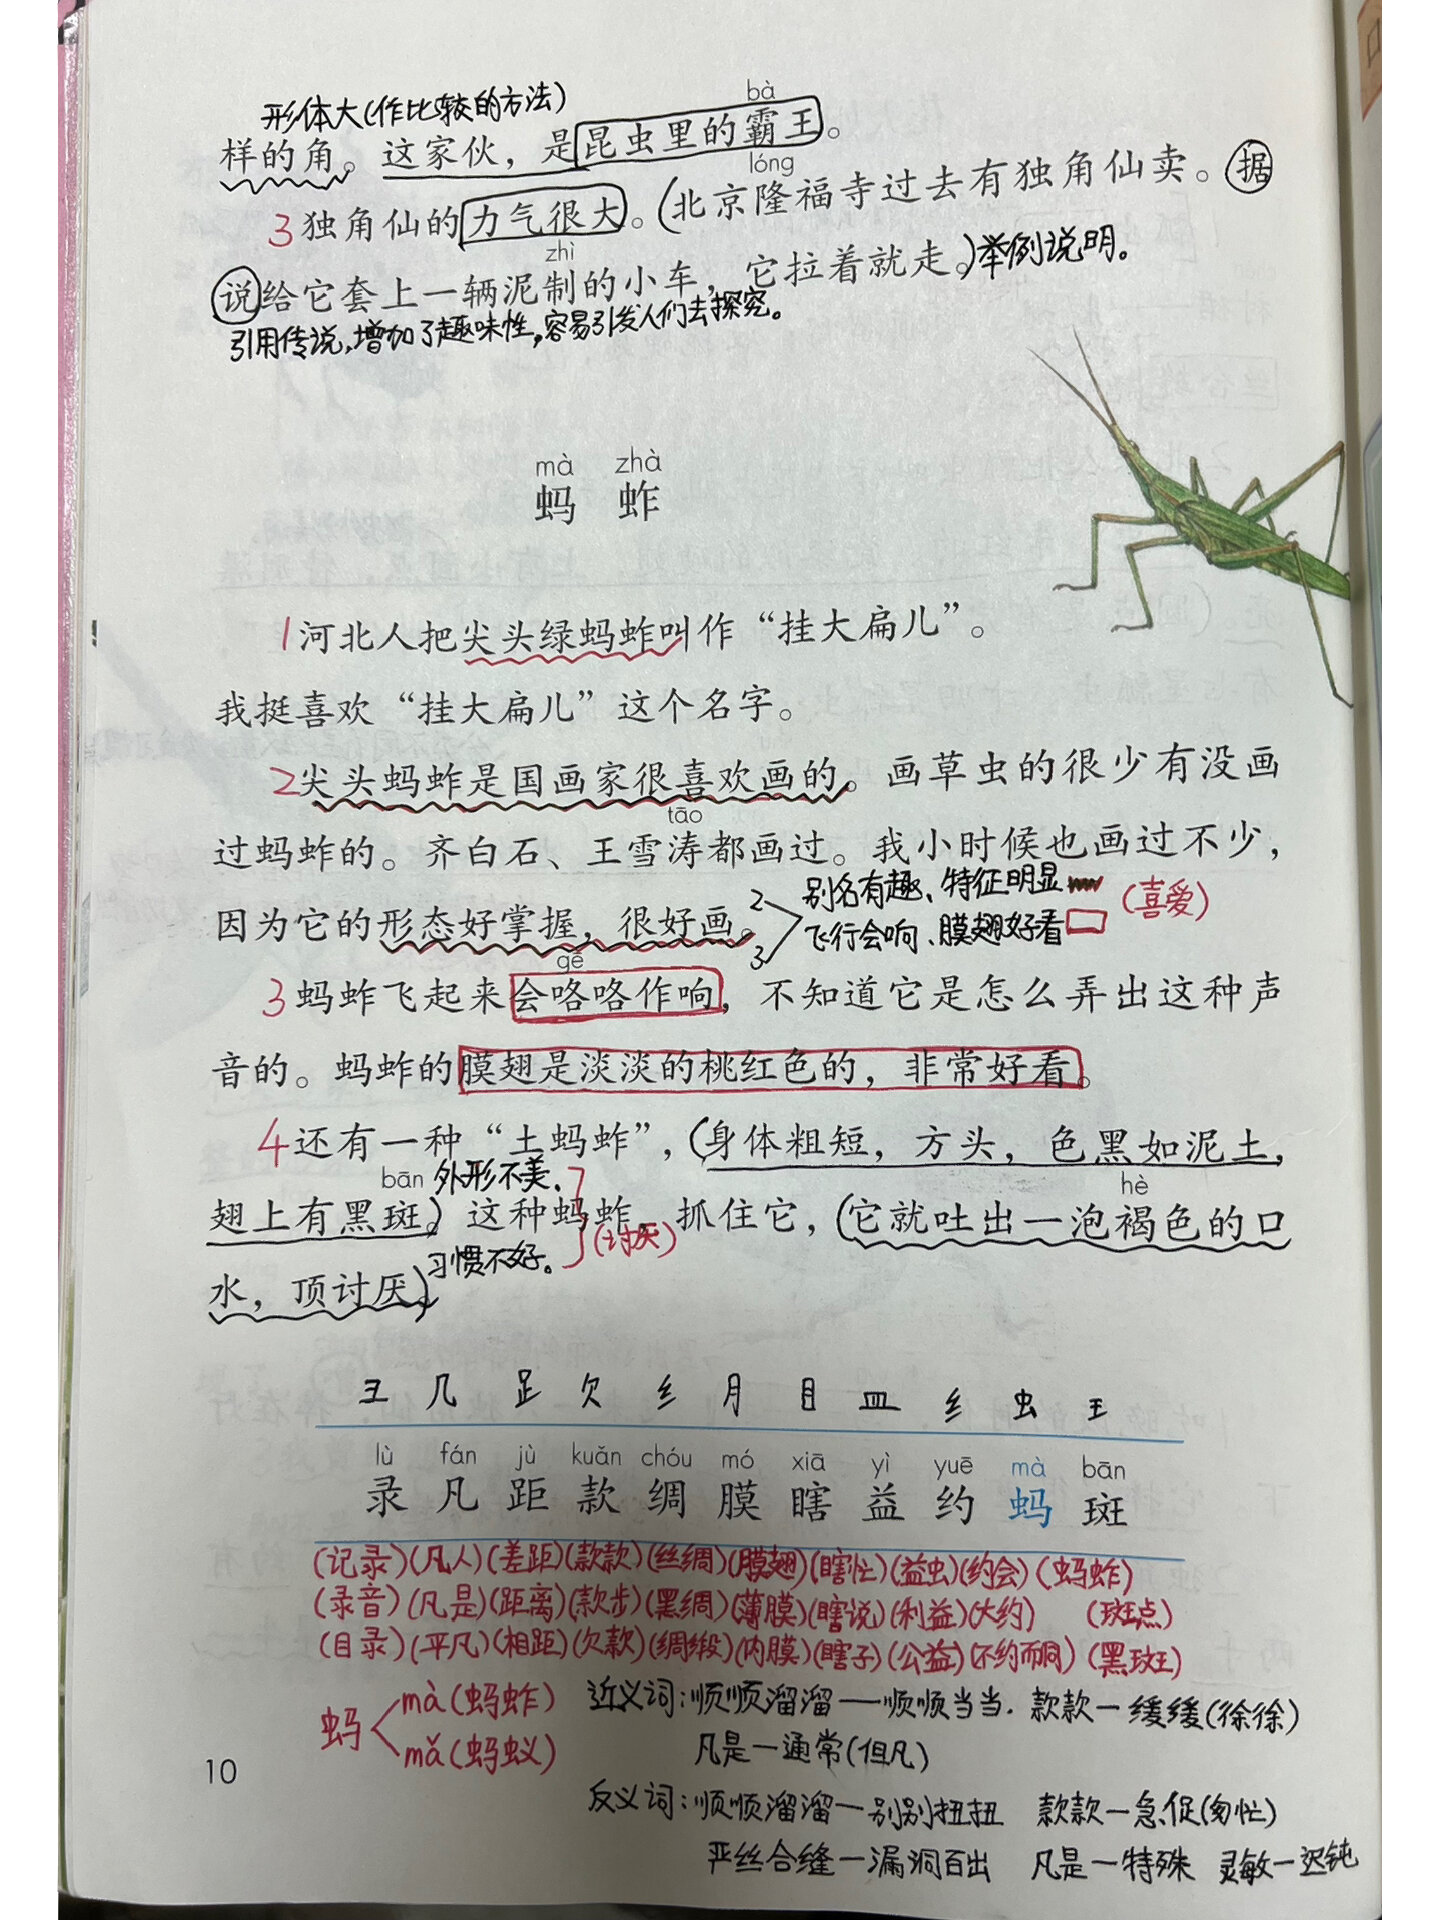 形体大(作比较的方法)
bà
样的角。这家伙，是昆虫里的霸王。
lóng
3独角仙的力气很大。(北京隆福寺过去有独角仙卖。据
zhì
说给它套上一辆泥制的小车，它拉着就走。)举例说明。
引用传说，增加了趣味性，容易引发人们去探究。
mà zhà
蚂 蚱
1河北人把尖头绿蚂蚱叫作“挂大扁儿”。
我挺喜欢“挂大扁儿”这个名字。
2尖头蚂蚱是国画家很喜欢画的。画草虫的很少有没画
tāo
过蚂蚱的。齐白石、王雪涛都画过。我小时候也画过不少，
2 别名有趣、特征明显 (喜爱)
因为它的形态好掌握，很好画。
3 飞行会响、膜翅好看
gē
3蚂蚱飞起来会咯咯作响，不知道它是怎么弄出这种声
音的。蚂蚱的膜翅是淡淡的桃红色的，非常好看。
4还有一种“土蚂蚱”，(身体粗短，方头，色黑如泥土，
bān 外形不美、 hè
翅上有黑斑。)这种蚂蚱，抓住它，(它就吐出一泡褐色的口
习惯不好。 (讨厌)
水，顶讨厌。)
彐 几 𧾷 欠 纟 月 目 皿 纟 虫 王
lù fán jù kuǎn chóu mó xiā yì yuē mà bān
录 凡 距 款 绸 膜 瞎 益 约 蚂 斑
(记录)(凡人)(差距)(款款)(丝绸)(膜翅)(瞎忙)(益虫)(约会)(蚂蚱)
(录音)(凡是)(距离)(款步)(黑绸)(薄膜)(瞎说)(利益)(大约) (斑点)
(目录)(平凡)(相距)(欠款)(绸缎)(内膜)(瞎子)(公益)(不约而同)(黑斑)
蚂 mà(蚂蚱) 近义词：顺顺溜溜——顺顺当当. 款款—缓缓(徐徐)
mǎ(蚂蚁) 凡是—通常(但凡)
10
反义词：顺顺溜溜—别别扭扭 款款—急促(匆忙)
严丝合缝—漏洞百出 凡是—特殊 灵敏—迟钝